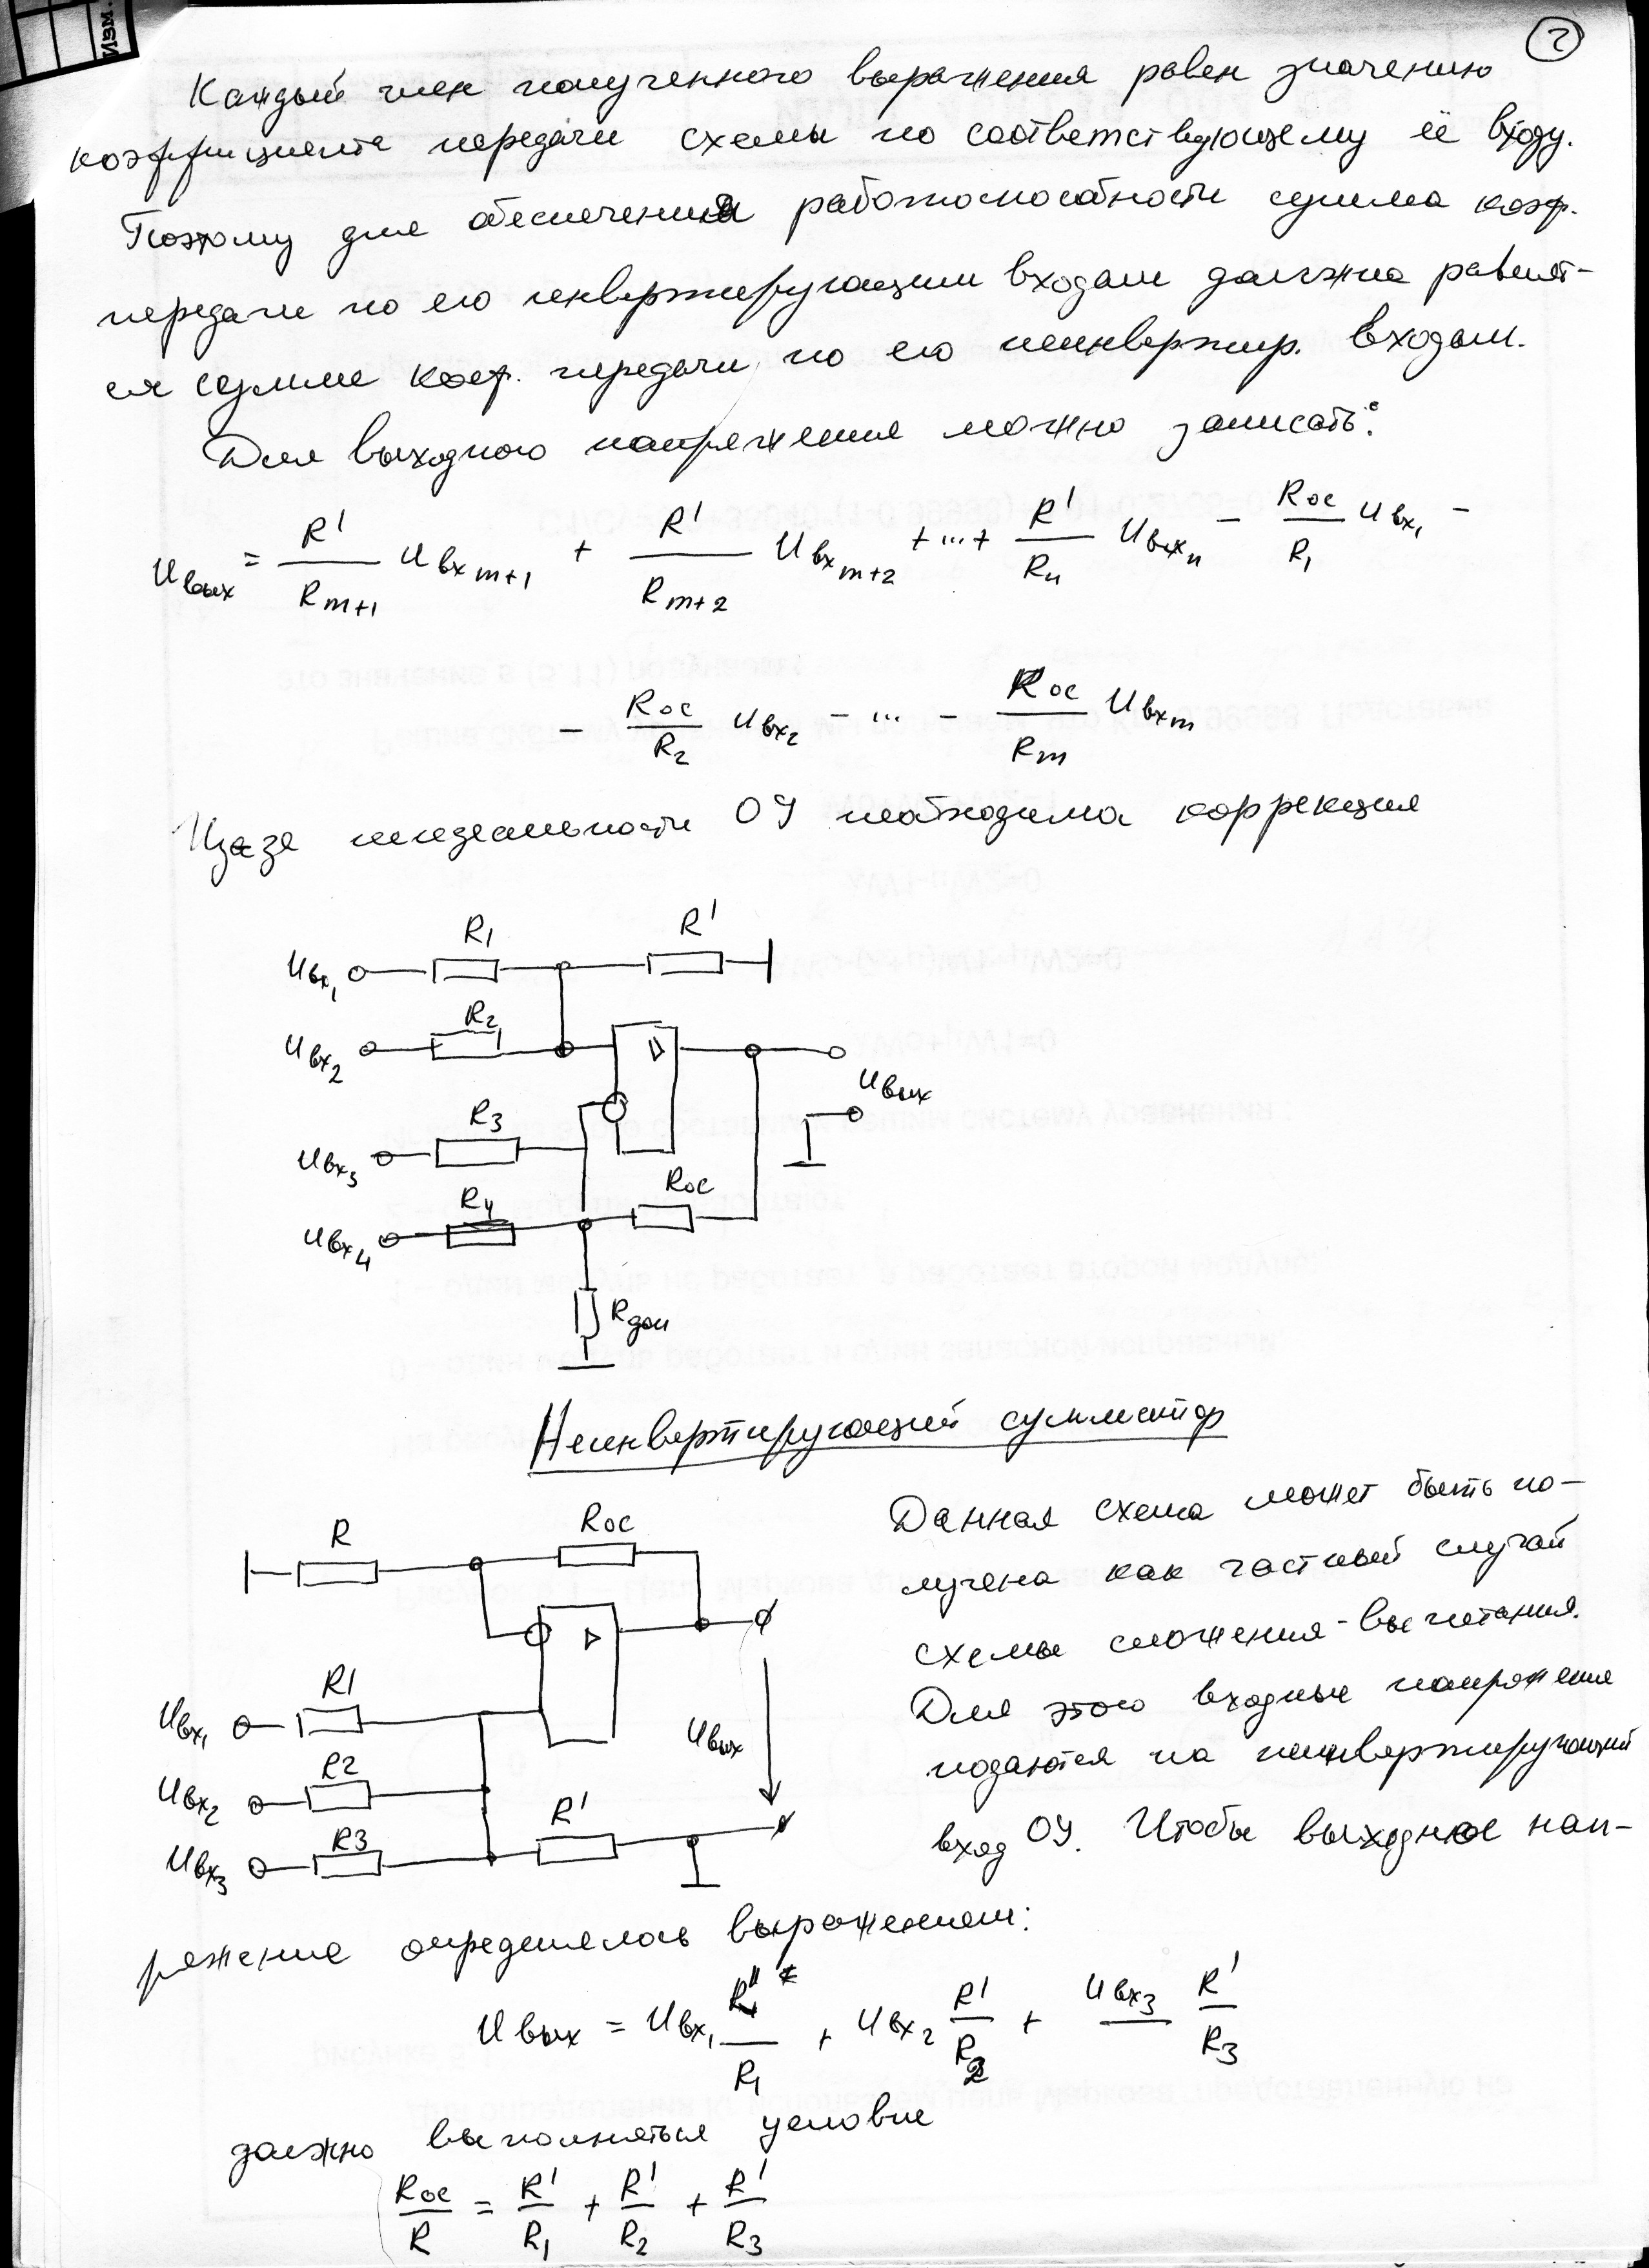 Изм.
2
Каждый член полученного выражения равен значению
коэффициента передачи схемы по соответствующему её входу.
Поэтому для обеспечения работоспособности сумма коэф.
передачи по его инвертирующим входам должна равнят-
ся сумме коеф. передачи по его неинвертир. входам.
Для выходного напряжения можно записать:
Uвых = R'/Rm+1 Uвхm+1 + R'/Rm+2 Uвхm+2 + ... + R'/Rn Uвхn - Rос/R1 Uвх1 -
- Rос/R2 Uвх2 - ... - Rос/Rm Uвхm
Изза неидеальности ОУ необходима коррекция
R1 R'
Uвх1
R2
Uвх2
Uвых
R3
Uвх3
Rос
R4
Uвх4
Rдоп
Неинвертирующий сумматор
Данная схема может быть по-
лучена как частный случай
схемы сложения-вычитания.
Для этого входные напряжения
подаются на неинвертирующий
вход ОУ. Чтобы выходное нап-
R Rос
R1
Uвх1
Uвых
R2
Uвх2
R'
R3
Uвх3
ряжение определялось выражением:
Uвых = Uвх1 R'/R1 + Uвх2 R'/R2 + Uвх3 R'/R3
должно выполняться условие
Rос/R = R'/R1 + R'/R2 + R'/R3